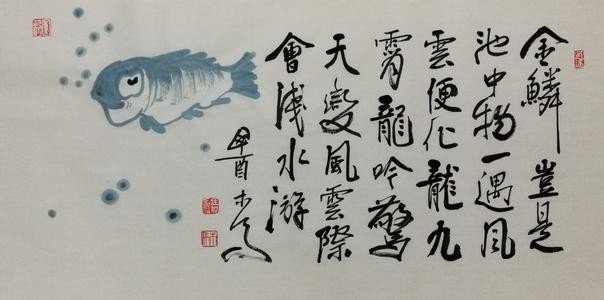 金鱗豈是
池中物一遇風
雲便化龍九
霄龍吟驚
天變風雲際
會淺水游